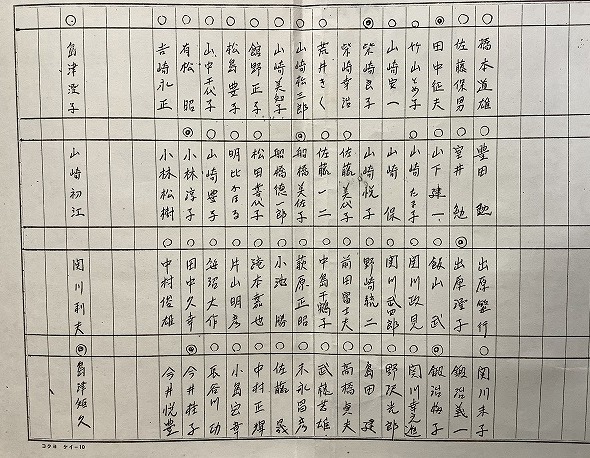 橋本道雄
佐藤保男
田中征夫
竹山とめ子
山崎宏一
柴崎良子
柴崎幸治
荒井きく
山崎松三郎
山崎美知子
館野正子
松島豊子
山中千代子
有松 昭
吉崎永正
島津澄子
豊田
室井 勉
山下建一
山崎たま子
山崎 保
山崎悦子
佐藤美代子
佐藤一二
船橋美佐子
船橋徳一郎
松田喜代子
明比かほる
山崎豊子
小林淳子
小林松樹
山崎初江
出原繁行
出原澄子
飯山 武
関川政見
関川武四郎
野崎統二
前田富士夫
中島千鶴子
荻原正昭
小池 勝
滝本嘉也
片山明彦
大作
田中久幸
中村俊雄
関川利夫
関川未子
鍛治義一
鍛治梅子
関川
野沢光郎
島田
高橋貞夫
武藤芳雄
末永昌彦
佐藤 晟
中村正輝
小島宏幸
長谷川 功
今井桂子
今井悦豊
島津矩久
コクヨ ケイ-10